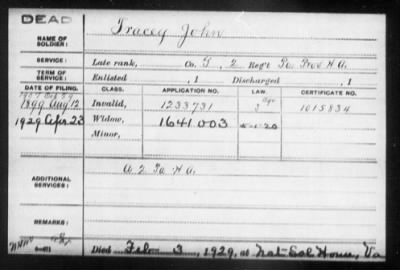 DEAD
NAME OF SOLDIER: Tracey John
SERVICE: Late rank, Co. G, 2 Reg't Pa Prov H A.
TERM OF SERVICE: Enlisted , 1 Discharged , 1
DATE OF FILING. CLASS. APPLICATION NO. LAW. CERTIFICATE NO.
1899 Aug 12 Invalid, 1233731 1015834
1929 Apr 23 Widow, 1641003
Minor,
ADDITIONAL SERVICES: A 2 Pa H A.
REMARKS:
Died Feb 3, 1929, at Nat Sol Home, Va